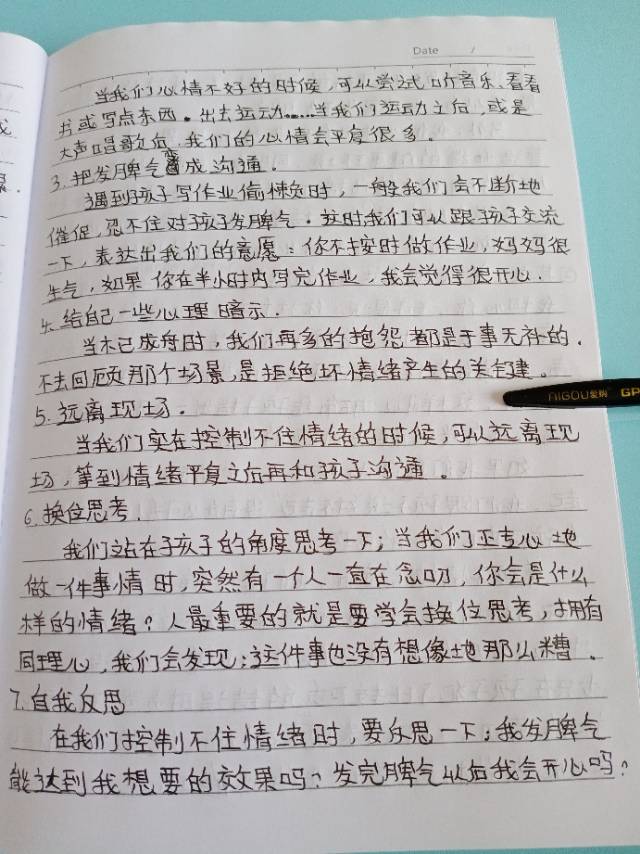 Date /
当我们心情不好的时候，可以尝试听音乐、看看
书或写点东西。出去运动……当我们运动之后，或是
大声唱歌后，我们的心情会平复很多。
3.把发脾气变成沟通。
遇到孩子写作业偷懒时，一般我们会不断地
催促，忍不住对孩子发脾气。这时我们可以跟孩子交流
一下，表达出我们的意愿：你不按时做作业，妈妈很
生气，如果你在半小时内写完作业，我会觉得很开心.
4.给自己一些心理暗示.
当木已成舟时，我们再多的抱怨都是于事无补的.
不去回顾那个场景，是拒绝坏情绪产生的关键。
5.远离现场.
当我们实在控制不住情绪的时候，可以远离现
场，等到情绪平复之后再和孩子沟通。
6.换位思考.
我们站在孩子的角度思考一下；当我们正专心地
做一件事情时，突然有一个人一直在念叨，你会是什么
样的情绪？人最重要的就是要学会换位思考，拥有
同理心，我们会发现；这件事也没有想像地那么糟.
7.自我反思
在我们控制不住情绪时，要反思一下；我发脾气
能达到我想要的效果吗？发完脾气以后我会开心吗？
AIGOU爱购 GP